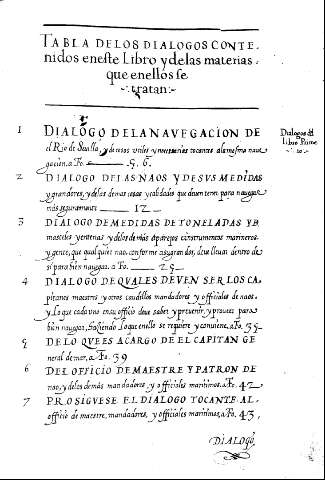 TABLA DE LOS DIALOGOS CONTE-
nidos en este Libro y de las materias
que en ellos se
tratan
1 DIALOGO DE LA NAVEGACION DE
el Rio de Sevilla, y de cosas utiles y necesarias tocante a la mesma nave
gacion, a Fo. 5. 6.
Dialogos del
Libro Prime
ro
2 DIALOGO DE LAS NAOS Y DE SUS MEDIDAS
y grandores, y de las demas cosas y calidades que deven tener para navegar
mas seguramente 12
3 DIALOGO DE MEDIDAS DE TONELADAS Y DE
masteles y entenas y de los demás aparejos e instrumentos marineros,
y gente, que qualquier nao, conforme a su grandor, deve llevar dentro de
si para bien navegar. a Fo. 25
4 DIALOGO DE QUALES DEVEN SER LOS CA-
pitanes maestros y otros caudillos mandadores y officiales de naos,
y Lo que cada uno en su officio deve saber y prevenir, y proveer para
bien navegar, haziendo Lo que en ello se requiere y conviene, a Fo. 35
5 DE LO QUE ES A CARGO DE EL CAPITAN GE
neral de mar, a Fo. 39
6 DEL OFFICIO DE MAESTRE Y PATRON DE
nao, y de los demás mandadores y officiales maritimos, a Fo. 42
7 PROSIGUESE EL DIALOGO TOCANTE AL
officio de maestre, mandadores, y officiales maritimos, a Fo. 43.
DIALOGO